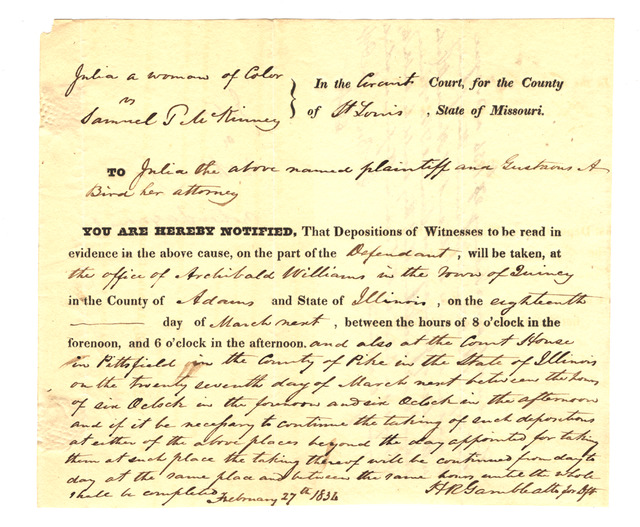 Julia a woman of Color
vs
Samuel T McKinney
In the Circuit Court, for the County
of St Louis, State of Missouri.
TO Julia the above named plaintiff and Gustavus A
Bird her attorney
YOU ARE HEREBY NOTIFIED, That Depositions of Witnesses to be read in
evidence in the above cause, on the part of the Defendant, will be taken, at
the office of Archibald Williams in the Town of Quincy
in the County of Adams and State of Illinois, on the eighteenth
day of March next, between the hours of 8 o'clock in the
forenoon, and 6 o'clock in the afternoon. and also at the Court House
in Pittsfield in the County of Pike in the State of Illinois
on the twenty seventh day of March next between the hours
of six Oclock in the forenoon and six Oclock in the afternoon
and if it be necessary to continue the taking of such depositions
at either of the above places beyond the day appointed for taking
them at such place the taking thereof will be continued from day to
day at the same place and between the same hours until the whole
shall be completed
February 27th 1834 H R Gamble atto for Dft